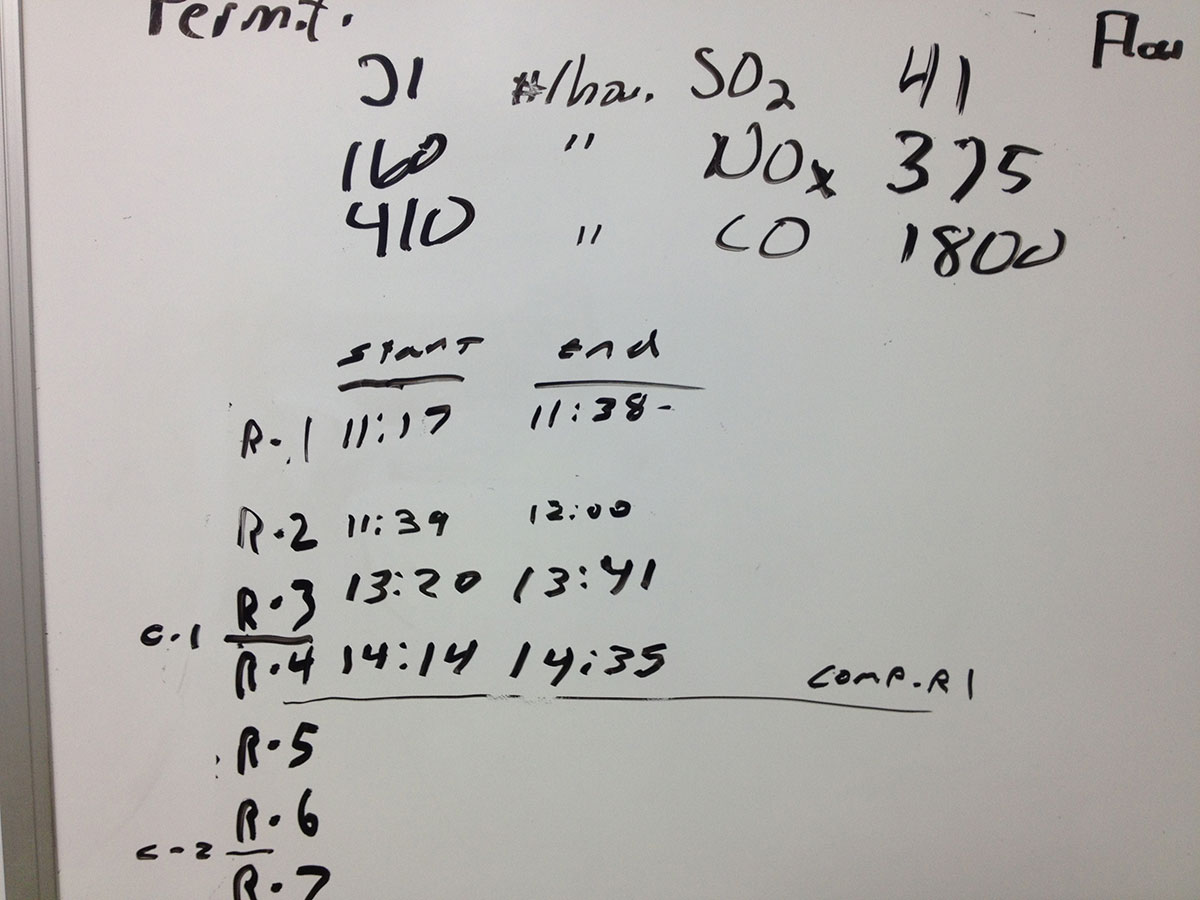 Permit.
Flow
31 #/hou. SO2 41
160 " NOx 375
410 " CO 1800
start end
R-1 11:17 11:38-
R-2 11:39 12:00
R-3 13:20 13:41
C-1
R-4 14:14 14:35 COMP.R1
R-5
R-6
C-2
R-7